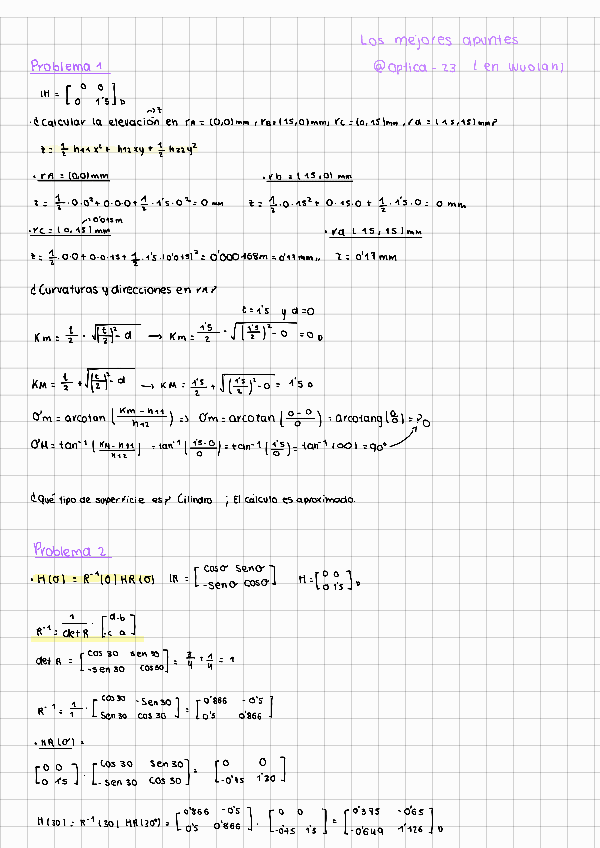 Los mejores apuntes
Problema 1
@Optica-23 (en Wuolah)
H = [0 0; 0 1'5] D
¿Calcular la elevación en rA = (0,0)mm, rB=(15,0)mm, rC=(0,15)mm, rd = (15,15)mm?
→z
z = 1/2 h11 x² + h12 xy + 1/2 h22 y²
· rA = (0,0) mm
· rb = (15,0) mm
z = 1/2 · 0·0² + 0·0·0 + 1/2 · 1'5 · 0² = 0 mm
z = 1/2 · 0 · 15² + 0·15·0 + 1/2 · 1'5·0 = 0 mm
→0'015m
· rc = (0,15) mm
· rd (15,15) mm
z = 1/2 · 0·0 + 0·0·15 + 1/2 · 1'5 · (0'015)² = 0'000168m = 0'17mm
z = 0'17 mm
¿Curvaturas y direcciones en rA?
t = 1'5 y d = 0
Km = t/2 - √((t/2)² - d) → Km = 1'5/2 - √((1'5/2)² - 0) = 0 D
KM = t/2 + √((t/2)² - d) → KM = 1'5/2 + √((1'5/2)² - 0) = 1'5 D
σm = arcotan ((Km - h11)/h12) => σm = arcotan ((0-0)/0) = arcotang (0/0) = ?
σM = tan⁻¹ ((KM - h11)/h12) = tan⁻¹ ((1'5-0)/0) = tan⁻¹ (1'5/0) = tan⁻¹ (∞) = 90°
¿Qué tipo de superficie es? Cilindro ; El cálculo es aproximado.
Problema 2
· H(σ) = R⁻¹(σ) HR(σ) R = [cosσ senσ; -senσ cosσ] H = [0 0; 0 1'5] D
R⁻¹ = 1/det R · [d -b; -c a]
det R = [cos 30 sen 30; -sen 30 cos 30] = 3/4 + 1/4 = 1
R⁻¹ = 1/1 · [cos 30 -sen 30; sen 30 cos 30] = [0'866 -0'5; 0'5 0'866]
· HR(σ) =
[0 0; 0 1'5] · [cos 30 sen 30; -sen 30 cos 30] = [0 0; -0'75 1'30]
H(30) = R⁻¹(30) HR(30°) = [0'866 -0'5; 0'5 0'866] · [0 0; -0'75 1'3] = [0'375 -0'65; -0'649 1'126] D